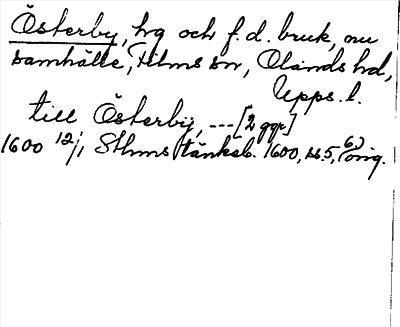 Österby, hg och f.d. bruk, nu
samhälle, Films sn, Olands hd,
Upps. l.
till Österby, --- [2 ggr]
1600 12/1 Sthms tänkeb. 1600, s. 5, 6, orig.